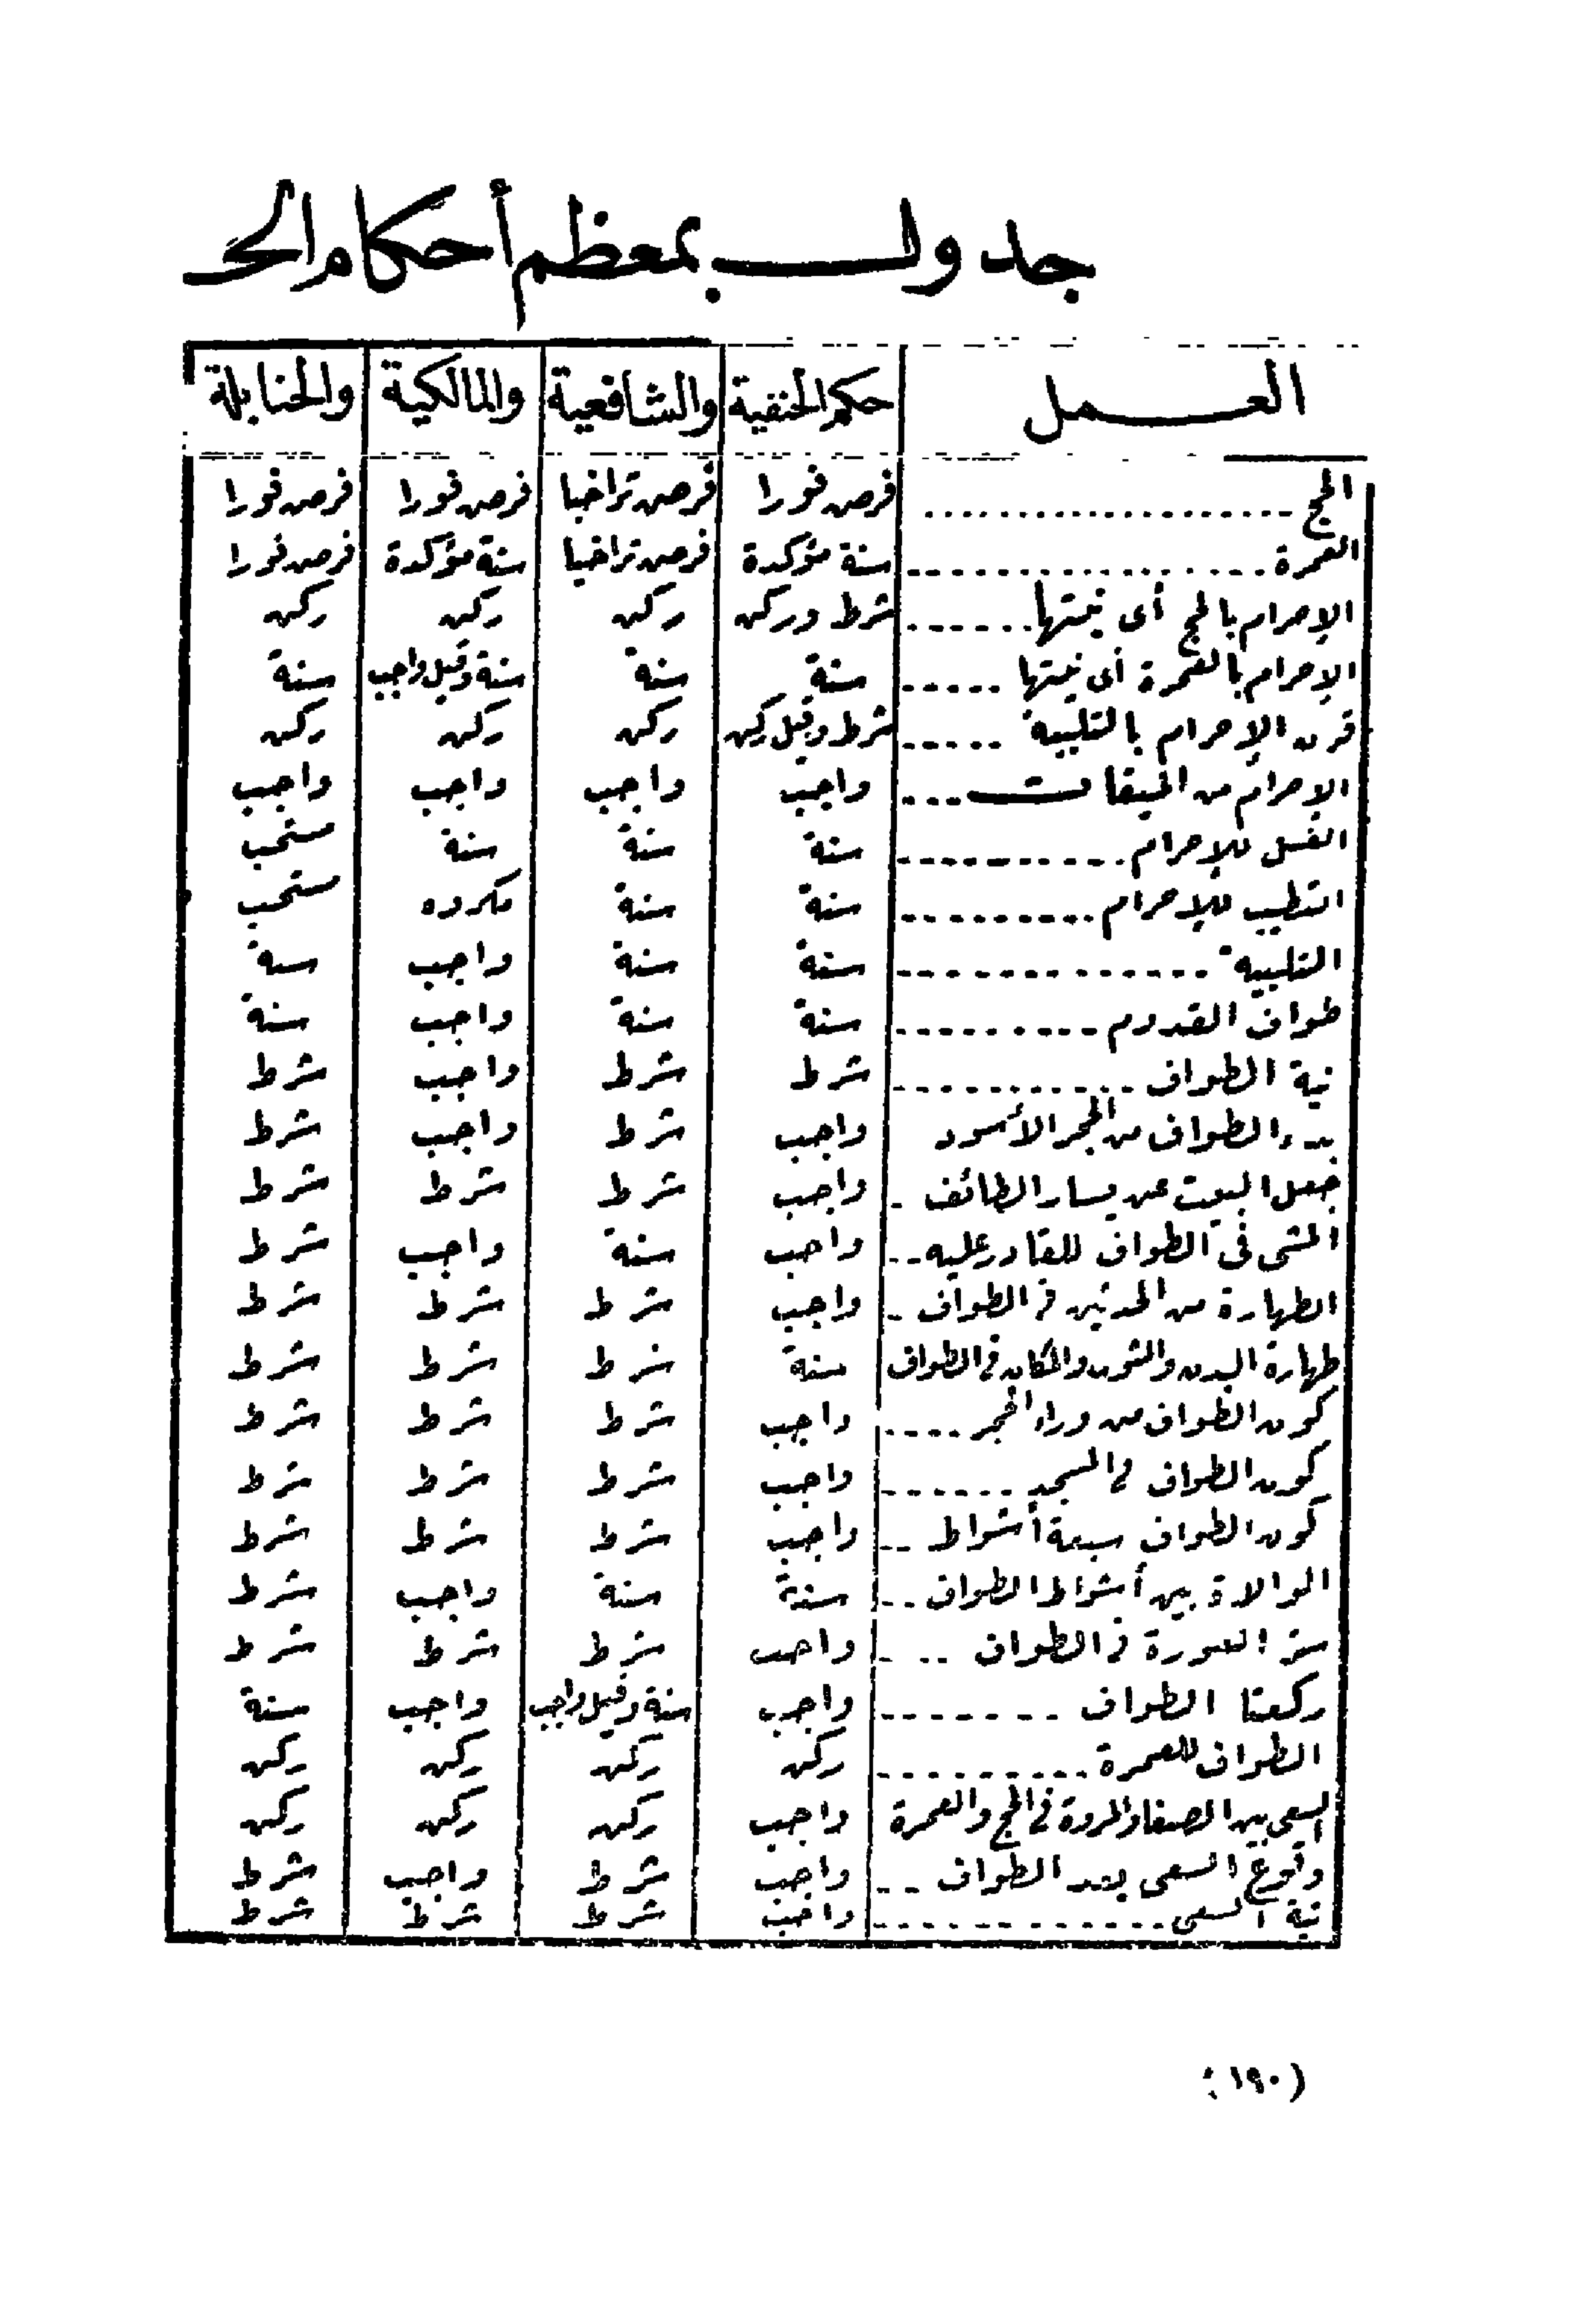 جدول بمعظم أحكام الحـ
العمل حكم الحنفية والشافعية والمالكية والحنابلة
الحج .................. فرض فورا فرض تراخيا فرض فورا فرض فورا
العمرة .................. سنة مؤكدة فرض تراخيا سنة مؤكدة فرض فورا
الإحرام بالحج أى نيتها ....... شرط وركن ركن ركن ركن
الإحرام بالعمرة أى نيتها ..... سنة سنة سنة وقيل واجب سنة
قرن الإحرام بالتلبية ..... شرط وقيل ركن ركن ركن ركن
الإحرام من الميقات .... واجب واجب واجب واجب
الغسل للإحرام ........... سنة سنة سنة مستحب
التطيب للإحرام .......... سنة سنة مكروه مستحب
التلبية .............. سنة سنة واجب سنة
طواف القدوم .......... سنة سنة واجب سنة
نية الطواف ............ شرط شرط واجب شرط
بدء الطواف من الحجر الأسود واجب شرط واجب شرط
جعل البيت عن يسار الطائف . واجب شرط شرط شرط
المشى فى الطواف للقادر عليه .. واجب سنة واجب شرط
الطهارة من الحدثين فى الطواف . واجب شرط شرط شرط
طهارة البدن والثوب والمكان فى الطواف سنة شرط شرط شرط
كون الطواف من وراء الحجر .... واجب شرط شرط شرط
كون الطواف فى المسجد ....... واجب شرط شرط شرط
كون الطواف سبعة أشواط .. واجب شرط شرط شرط
الموالاة بين أشواط الطواف .. سنة سنة واجب شرط
ستر العورة فى الطواف ... واجب شرط شرط شرط
ركعتا الطواف ........ واجب سنة وقيل واجب واجب سنة
الطواف للعمرة .......... ركن ركن ركن ركن
السعى بين الصفا والمروة فى الحج والعمرة واجب ركن ركن ركن
وقوع السعى بعد الطواف .. واجب شرط واجب شرط
نية السعى .............. واجب شرط شرط شرط
(١٩٠)